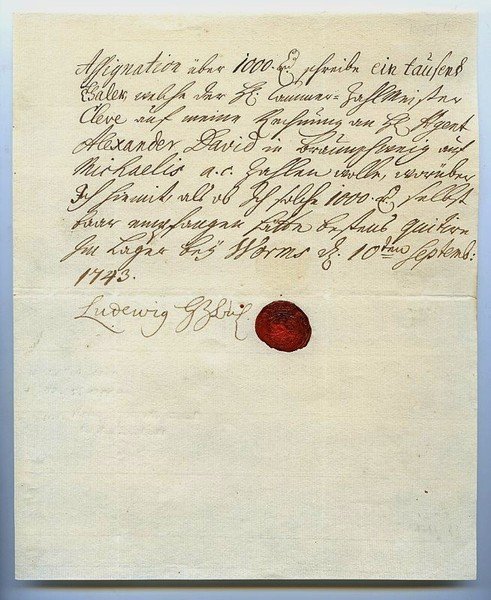 Assignation über 1000. rth schreibe ein tausend
Thaler, welche der H. Cammer-Zahlmeister
Cleve auf meine Rechnung an H. Agent
Alexander David in Braunschweig auf
Michaelis a.c. Zahlen wolle, worüber
Ich hiemit als ob Ich solche 1000. rth selbst
baar empfangen hätte bestens quitire
Im Lager bey Worms d. 10ten Septemb:
1743.
Ludewig